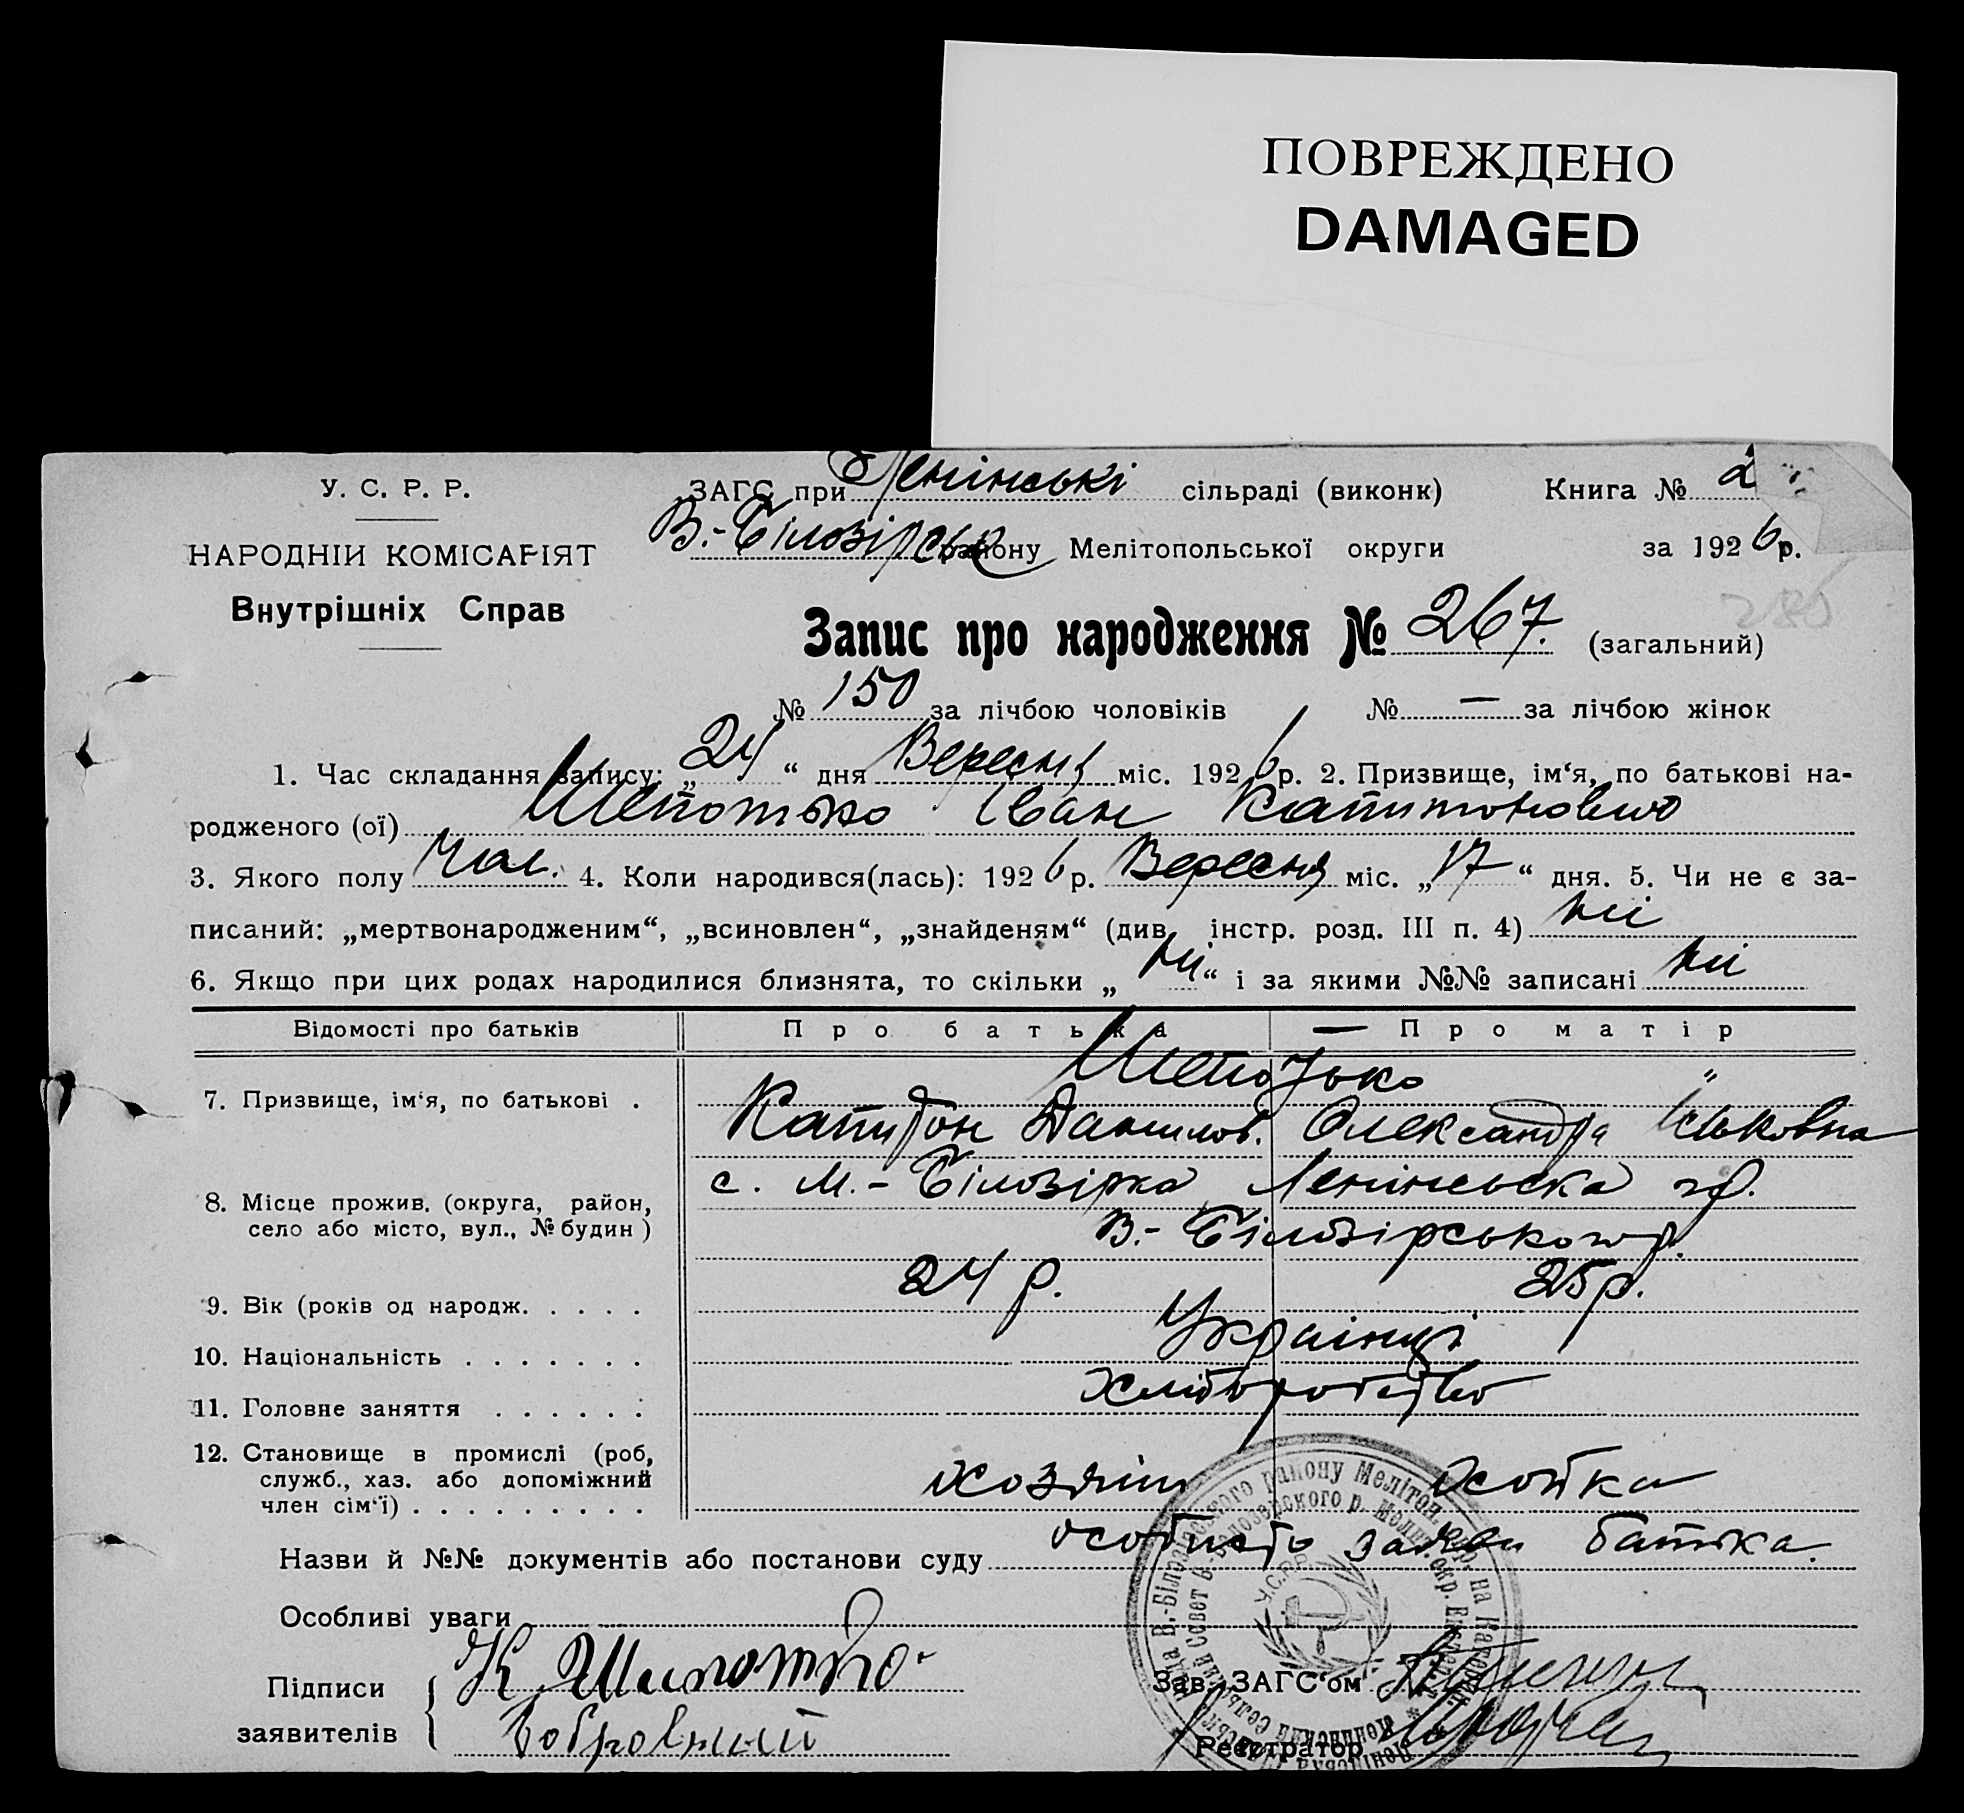 ПОВРЕЖДЕНО
DAMAGED
У. С. Р. Р.
ЗАГС при Ленінські сільраді (виконк) Книга № 2
НАРОДНІЙ КОМІСАРІЯТ
В.-Білозірськ району Мелітопольської округи за 1926 р.
Внутрішніх Справ
Запис про народження № 267. (загальний)
286
№ 150 за лічбою чоловіків № — за лічбою жінок
1. Час складання запису: „24“ дня Вересня міс. 1926 р. 2. Призвище, ім‘я, по батькові на-
родженого (ої) Шепотько Іван Капитонович
3. Якого полу Чол. 4. Коли народився(лась): 1926 р. Вересня міс. „17“ дня. 5. Чи не є за-
писаний: „мертвонародженим“, „всиновлен“, „знайденям“ (див. інстр. розд. III п. 4) ні
6. Якщо при цих родах народилися близнята, то скільки „ні“ і за якими №№ записані ні
Відомості про батьків Про батька — Про матір
Шепотько "
7. Призвище, ім‘я, по батькові .
Капитон Данилов. Олександра Іськовна
с. М.-Білозірка Ленінська
8. Місце прожив. (округа, район,
село або місто, вул., № будин )
В.-Білозірського р.
24 р. 25 р.
9. Вік (років од народж. . . . .
10. Національність . . . . . . . Українці
11. Головне заняття . . . . . . Хліборобство
12. Становище в промислі (роб,
служб., хаз. або допоміжний
член сім‘ї) . . . . . . . . .
хозяїн
Назви й №№ документів або постанови суду особисто заяви батька.
Особливі уваги
Підписи
заявителів
К Шипотько
Бобровный
Зав. ЗАГС‘ом
Реєстратор
У.С.Р.Р.